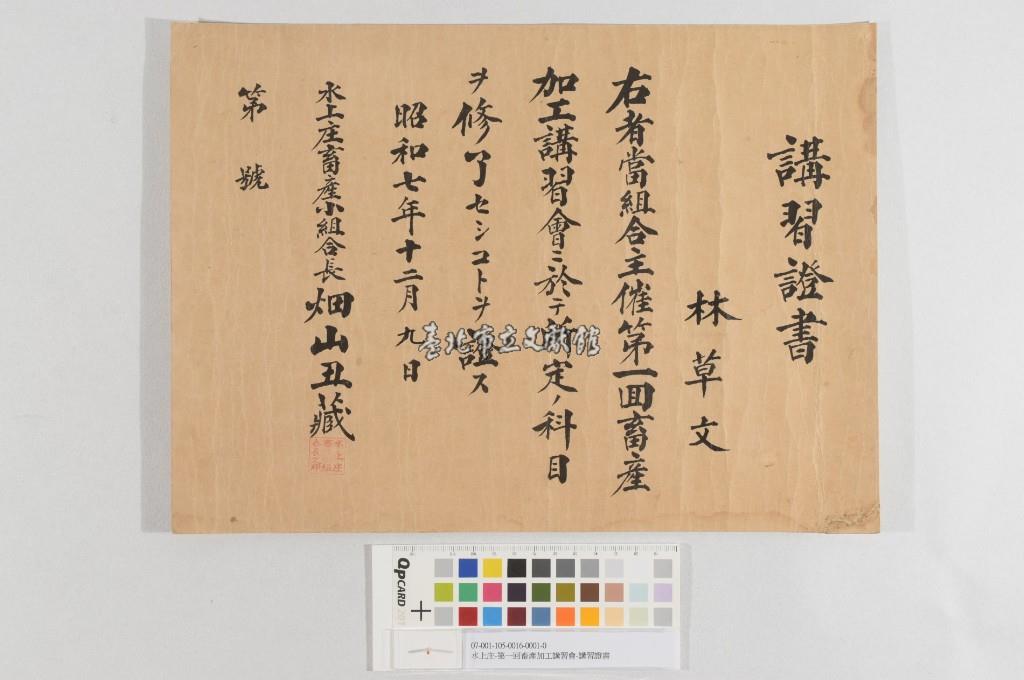 講習證書
林草文
右者當組合主催第一回畜產
加工講習會ニ於テ所定ノ科目
ヲ修了セシコトヲ證ス
昭和七年十二月九日
水上庄畜產小組合長 畑山丑藏
第 號
臺北市立文獻館
QpCARD 201
07-001-105-0016-0001-0
水上庄-第一回畜產加工講習會-講習證書